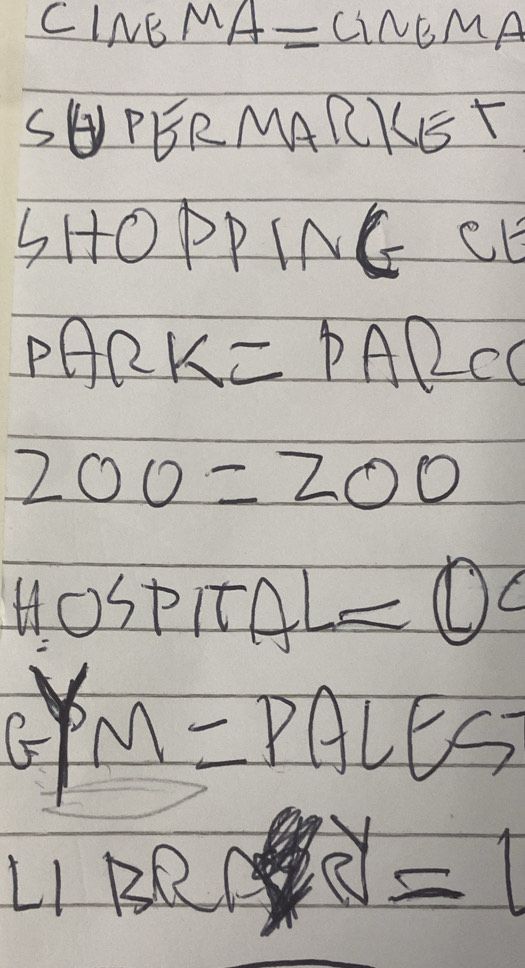 CINEMA = CINEMA
SUPERMARKET
SHOPPING CE
PARK = PARCO
ZOO = ZOO
HOSPITAL = O
GYM = PALEST
LIBRARY = L